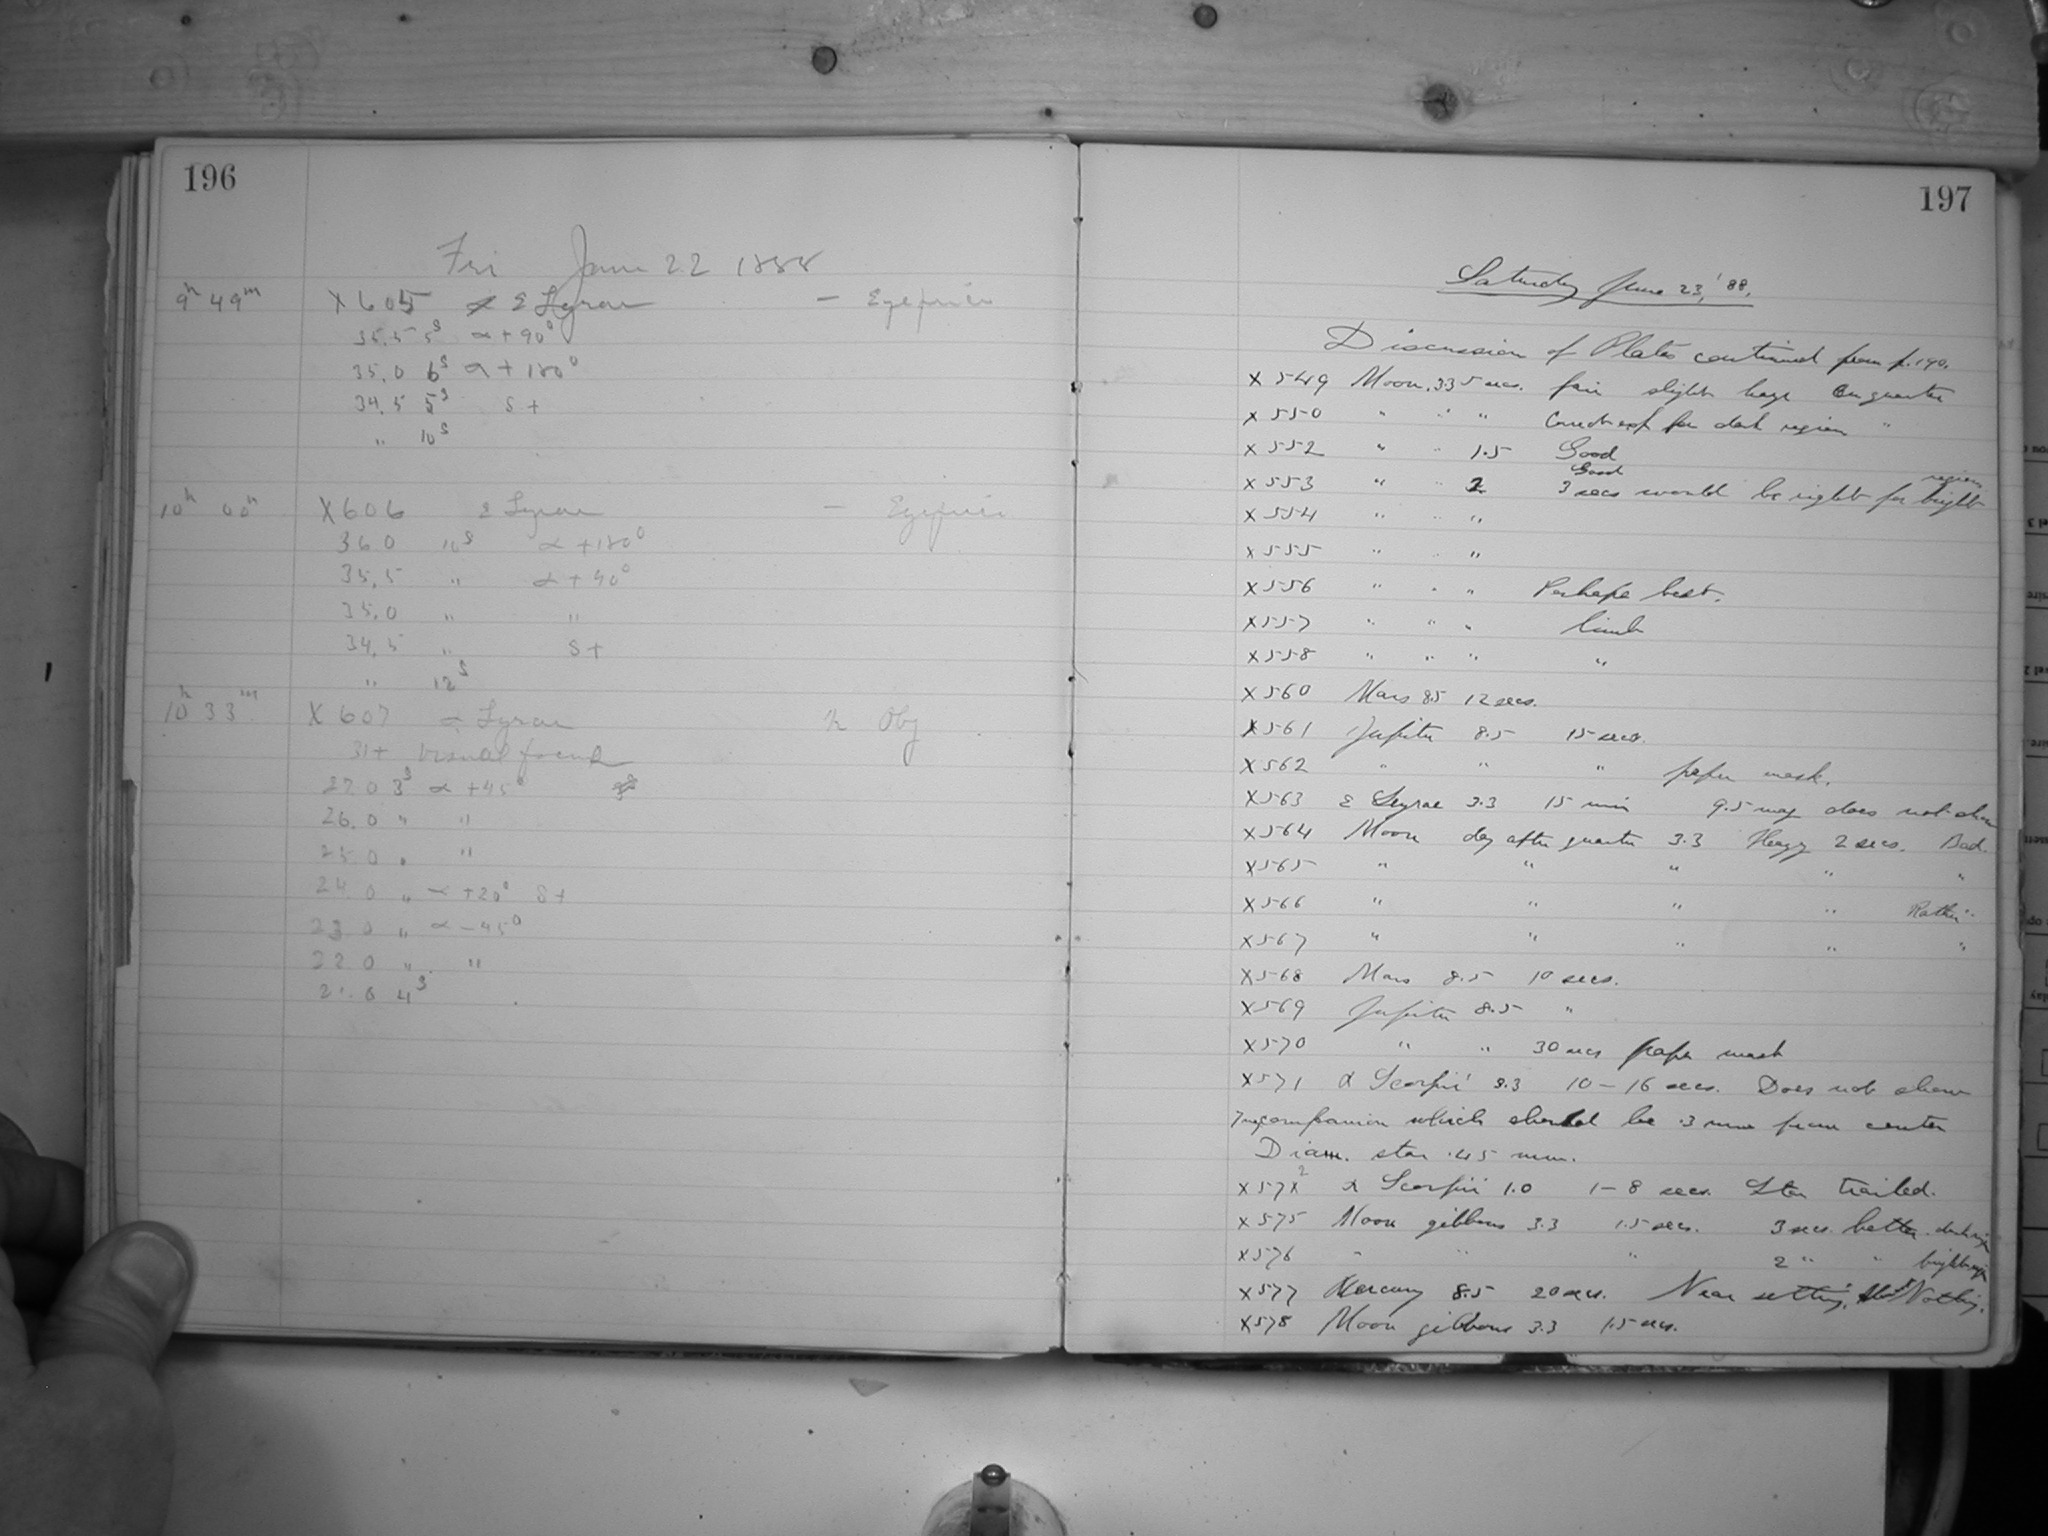 196
Fri June 22 1888
9h 49m X605 ε Lyrae – Eyepiece
35.5 5s α+90°
35.0 6s α+180°
34.5 5s S+
" 10s
10h 00m X606 ε Lyrae – Eyepiece
36.0 10s α+180°
35.5 " α+90°
35.0 " "
34.5 " S+
" 12s
10h 33m X607 α Lyrae Obj
31+ visual focus
27.0 3s α+45°
26.0 " "
25.0 " "
24.0 " α+20° S+
23.0 " α-45°
22.0 " "
21.0 4s
197
Saturday June 23, '88.
Discussion of Plates continued from p. 190.
X549 Moon 3.3 5 secs. fair slight haze On quarter
X550 " " " Correct exp for dark region "
X552 " " 1.5 Good
Good
X553 " " 2 3 secs would be right for bright region
X554 " " "
X555 " " "
X556 " " " Perhaps best.
X557 " " " limb
X558 " " " "
X560 Mars 8.5 12 secs.
X561 Jupiter 8.5 15 secs.
X562 " " " paper mask.
X563 ε Lyrae 3.3 15 min 9.5 mag does not show
X564 Moon day after quarter 3.3 Hazy 2 secs. Bad.
X565 " " " " "
X566 " " " " Rather "
X567 " " " " "
X568 Mars 8.5 10 secs.
X569 Jupiter 8.5 "
X570 " " 30 secs paper mask
X571 α Scorpii 3.3 10–16 secs. Does not show
7 mag companion which should be .3 mm from center
Diam. star .45 mm.
X572 α Scorpii 1.0 1–8 secs. Star trailed.
X575 Moon gibbous 3.3 1.5 secs. 3 secs. better dark region
X576 " " " 2 " " bright region
X577 Mercury 8.5 20 secs. Near setting. Nothing.
X578 Moon gibbous 3.3 1.5 secs.